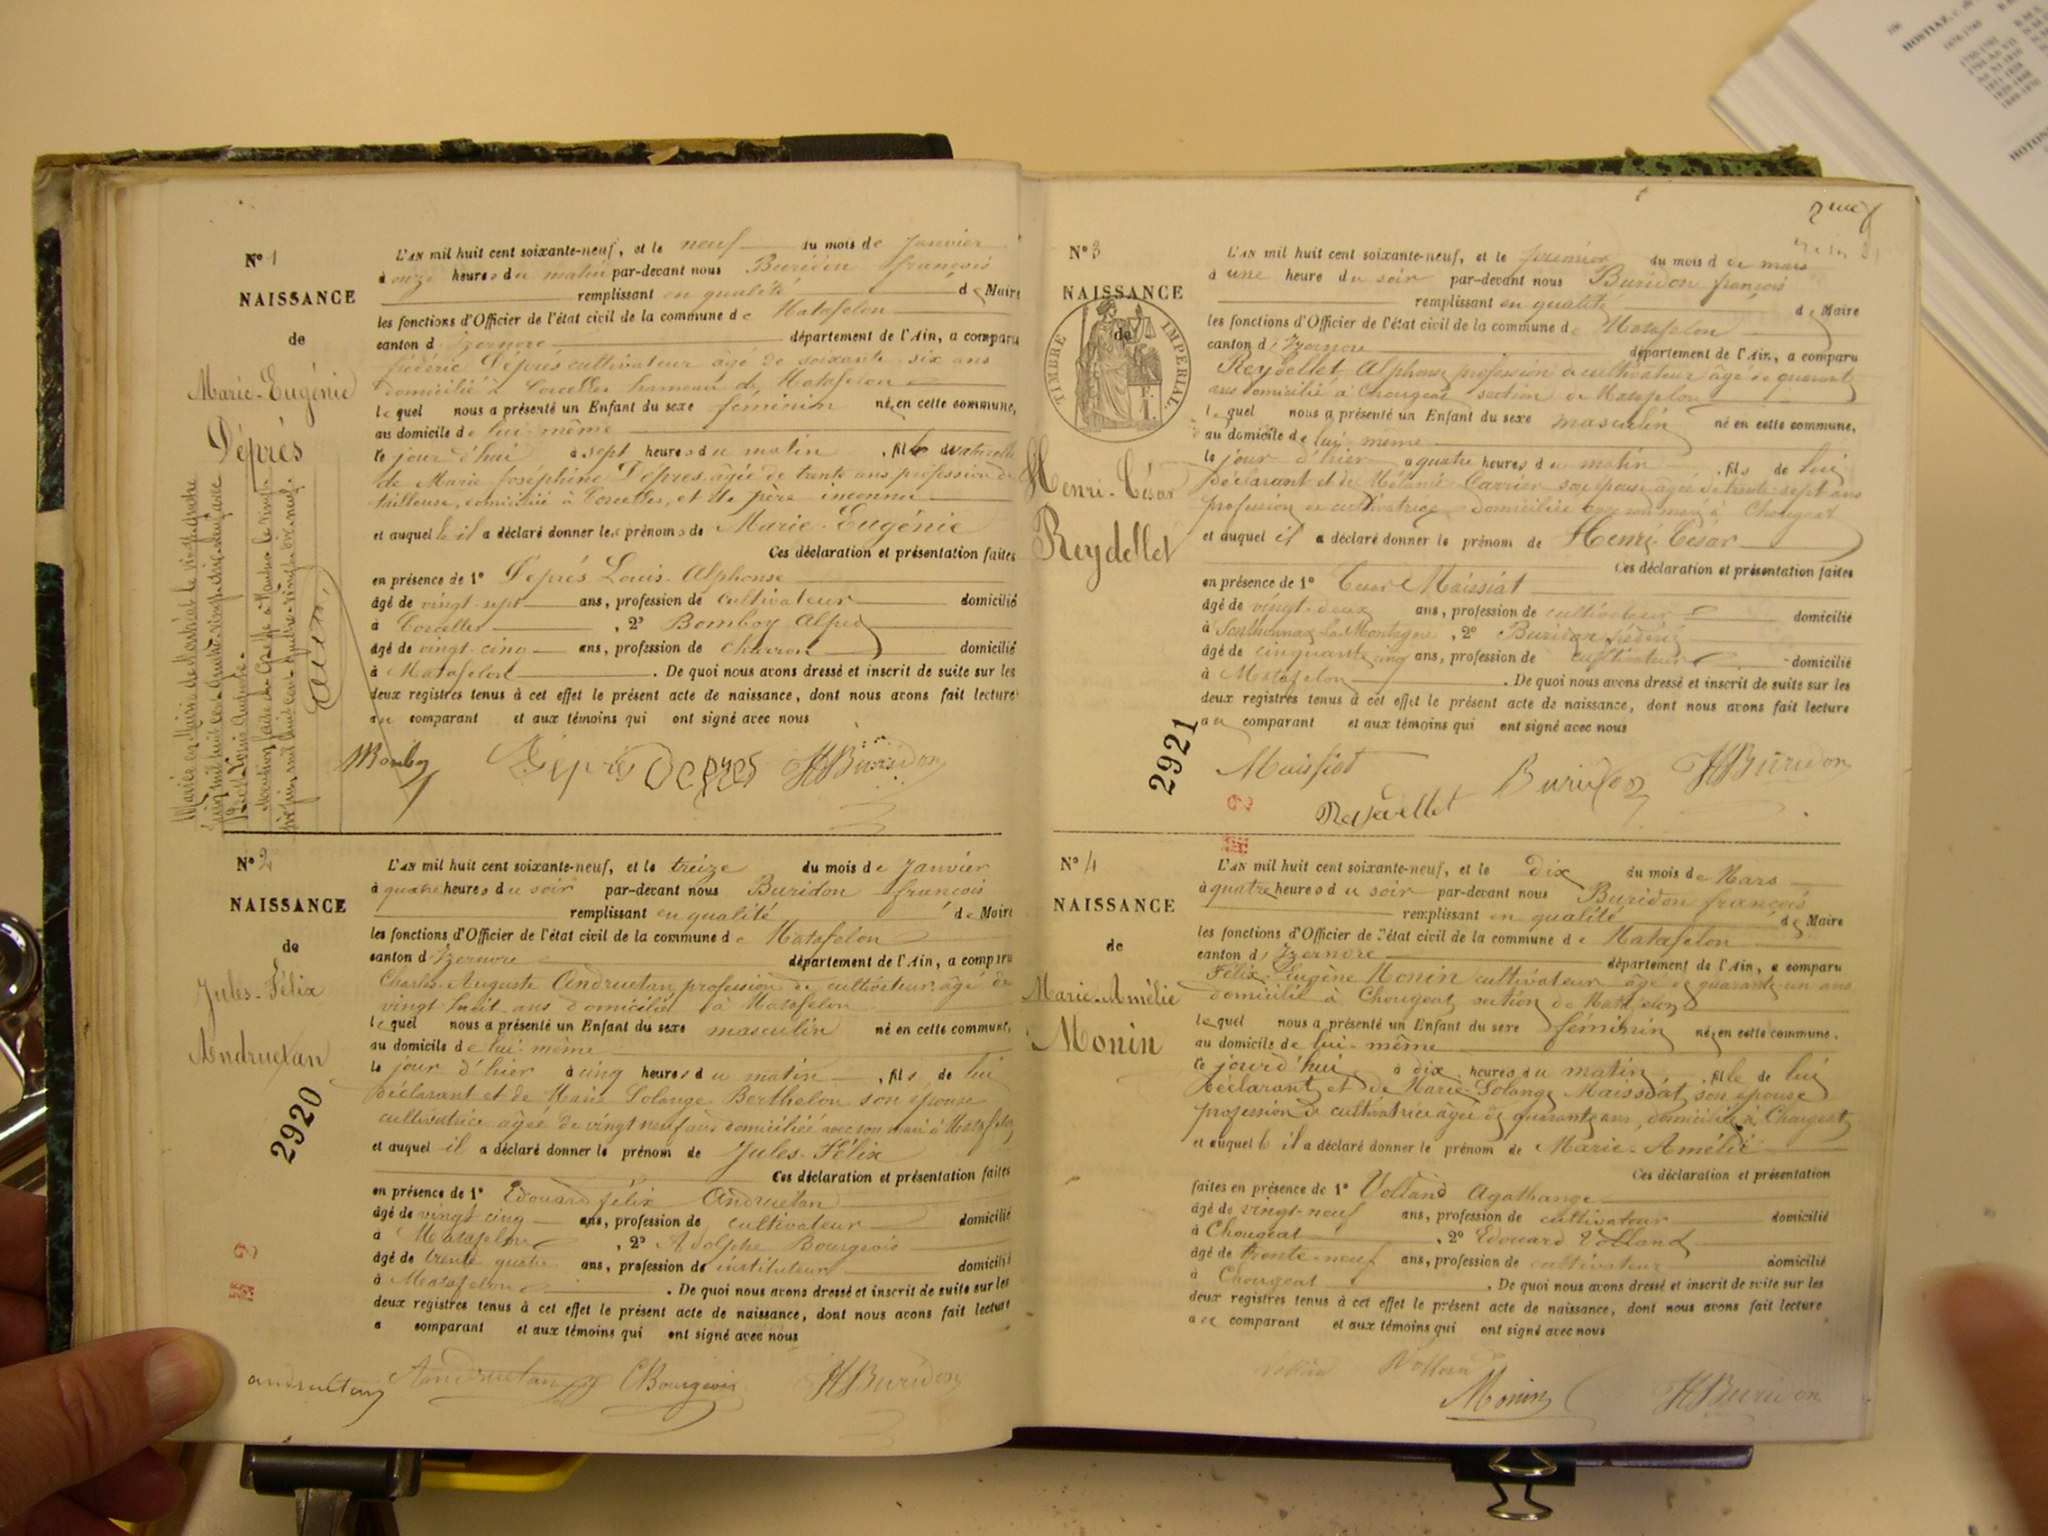 N° 1
NAISSANCE
de
Marie-Eugénie
Déprés
L'AN mil huit cent soixante-neuf, et le neuf du mois de Janvier
à onze heures du matin par-devant nous Buridon françois
remplissant en qualité de Maire
les fonctions d'Officier de l'état civil de la commune de Matafelon
canton d'Izernore département de l'Ain, a comparu
fédéric Déprés cultivateur âgé de soixante-six ans
domicilié à Corcelles hameau de Matafelon
lequel nous a présenté un Enfant du sexe féminin né, en cette commune,
au domicile de lui-même
ce jour d'hui à sept heures du matin, fille naturelle
de Marie Joséphine Déprés, âgée de trente ans profession de
tailleuse, domiciliée à Corcelles, et de père inconnu
et auquel il a déclaré donner les prénoms de Marie-Eugénie
Ces déclaration et présentation faites
en présence de 1° Déprés Louis-Alphonse
âgé de vingt-sept ans, profession de cultivateur domicilié
à Corcelles, 2° Bomboy Alfred
âgé de vingt-cinq ans, profession de charron domicilié
à Matafelon. De quoi nous avons dressé et inscrit de suite sur les
deux registres tenus à cet effet le présent acte de naissance, dont nous avons fait lecture
au comparant et aux témoins qui ont signé avec nous
Déprés Buridon
N° 2
NAISSANCE
de
Jules-Félix
Andruetan
2920
L'AN mil huit cent soixante-neuf, et le treize du mois de Janvier
à quatre heures du soir par-devant nous Buridon françois
remplissant en qualité de Maire
les fonctions d'Officier de l'état civil de la commune de Matafelon
canton d'Izernore département de l'Ain, a comparu
Charles-Auguste Andruetan, profession de cultivateur âgé de
vingt-huit ans domicilié à Matafelon
lequel nous a présenté un Enfant du sexe masculin né en cette commune,
au domicile de lui-même
le jour d'hier à cinq heures du matin, fils de lui
déclarant et de Marie Solange Berthelon son épouse
cultivatrice âgée de vingt neuf ans domiciliée avec son mari à Matafelon
et auquel il a déclaré donner le prénom de Jules-Félix
Ces déclaration et présentation faites
en présence de 1° Edouard félix Andruetan
âgé de vingt-cinq ans, profession de cultivateur domicilié
à Matafelon, 2° Adolphe Bourgeois
âgé de trente quatre ans, profession de instituteur domicilié
à Matafelon. De quoi nous avons dressé et inscrit de suite sur les
deux registres tenus à cet effet le présent acte de naissance, dont nous avons fait lecture
a comparant et aux témoins qui ont signé avec nous
Andruetan Bourgeois Buridon
N° 3
NAISSANCE
de
TIMBRE IMPÉRIAL
Henri-César
Reydellet
2921
L'AN mil huit cent soixante-neuf, et le premier du mois de mars
à une heure du soir par-devant nous Buridon françois
remplissant en qualité de Maire
les fonctions d'Officier de l'état civil de la commune de Matafelon
canton d'Izernore département de l'Ain, a comparu
Reydellet Alphonse profession de cultivateur âgé de quarante
ans domicilié à Chougeat section de Matafelon
lequel nous a présenté un Enfant du sexe masculin né en cette commune,
au domicile de lui-même
le jour d'hier à quatre heures du matin, fils de lui
déclarant et de Mélanie Carrier son épouse âgée de trente-sept ans
profession de cultivatrice domiciliée avec son mari à Chougeat
et auquel il a déclaré donner le prénom de Henri-César
Ces déclaration et présentation faites
en présence de 1° Maissiat
âgé de vingt-deux ans, profession de cultivateur domicilié
à Sonthonnax la Montagne, 2° Buridon
âgé de cinquante cinq ans, profession de cultivateur domicilié
à Matafelon. De quoi nous avons dressé et inscrit de suite sur les
deux registres tenus à cet effet le présent acte de naissance, dont nous avons fait lecture
au comparant et aux témoins qui ont signé avec nous
Maissiat Buridon Buridon
Reydellet
N° 4
NAISSANCE
de
Marie-Amélie
Monin
L'AN mil huit cent soixante-neuf, et le Dix du mois de Mars
à quatre heures du soir par-devant nous Buridon françois
remplissant en qualité de Maire
les fonctions d'Officier de l'état civil de la commune de Matafelon
canton d'Izernore département de l'Ain, a comparu
Félix-Eugène Monin cultivateur âgé de quarante-un ans
domicilié à Chougeat section de Matafelon
lequel nous a présenté un Enfant du sexe féminin né, en cette commune.
au domicile de lui-même
ce jourd'hui à dix heures du matin, fille de lui
déclarant, et de Marie-Solange Maissiat, son épouse
profession de cultivatrice âgée de quarante ans, domiciliée à Chougeat
et auquel il a déclaré donner le prénom de Marie-Amélie
Ces déclaration et présentation
faites en présence de 1° Volland Agathange
âgé de vingt-neuf ans, profession de cultivateur domicilié
à Chougeat, 2° Edouard Volland
âgé de trente-neuf ans, profession de cultivateur domicilié
à Chougeat. De quoi nous avons dressé et inscrit de suite sur les
deux registres tenus à cet effet le présent acte de naissance, dont nous avons fait lecture
au comparant et aux témoins qui ont signé avec nous
Volland
Monin Buridon